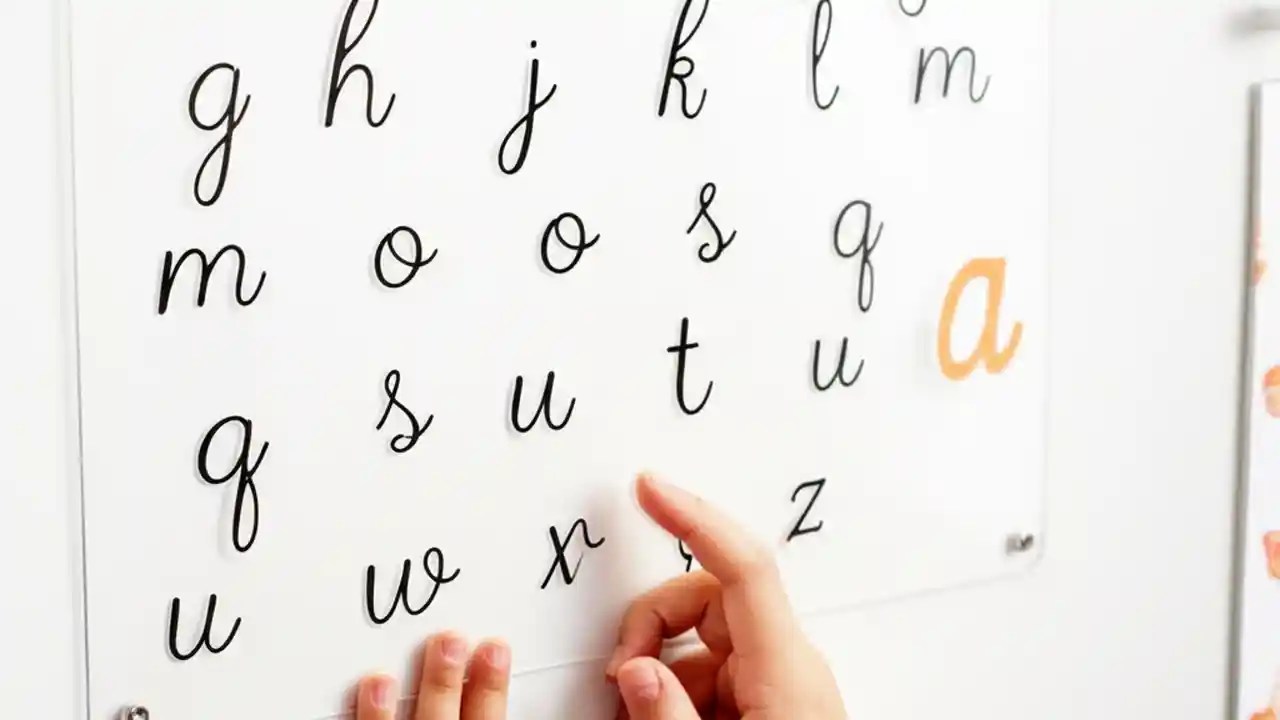 g h j k l m
m o o s q
q s u t u a
u w x z